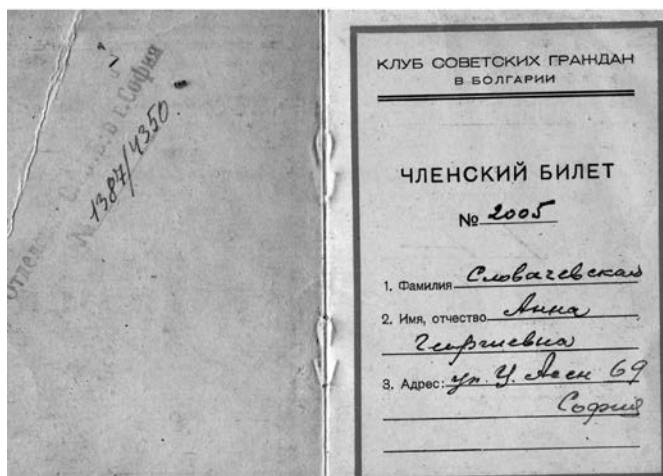 в г. София
№ 1387/4350
КЛУБ СОВЕТСКИХ ГРАЖДАН
В БОЛГАРИИ
ЧЛЕНСКИЙ БИЛЕТ
№ 2005
1. Фамилия Словачевская
2. Имя, отчество Анна
Георгиевна
3. Адрес: ул. Ц. Асен 69
София